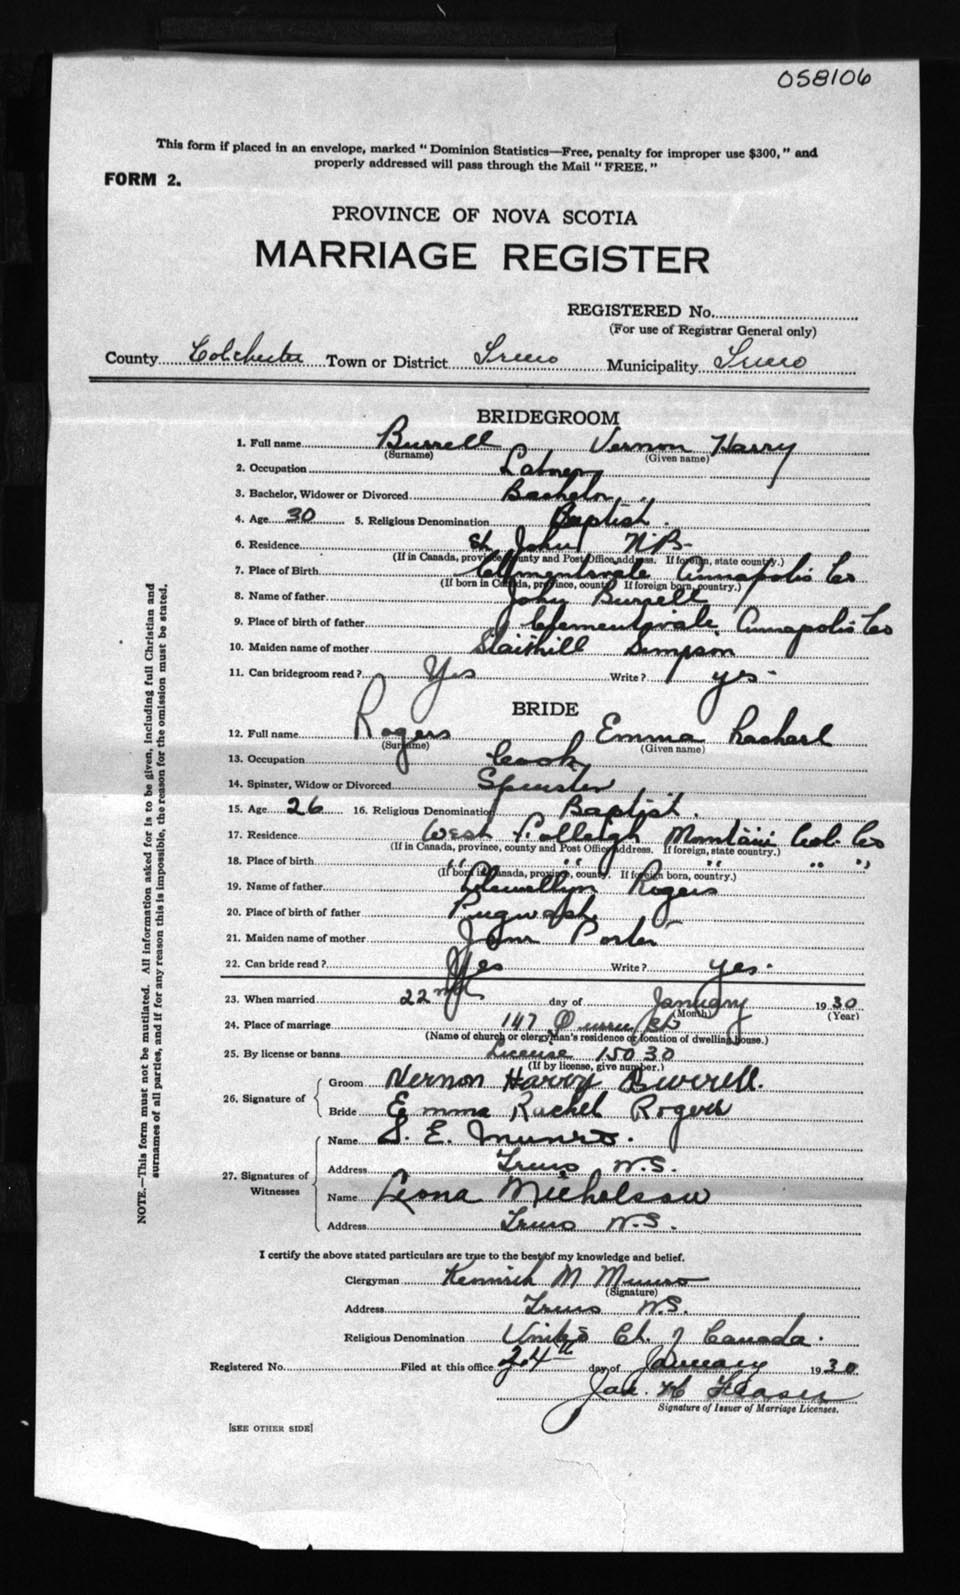 058106
This form if placed in an envelope, marked "Dominion Statistics—Free, penalty for improper use $300," and
properly addressed will pass through the Mail "FREE."
FORM 2.
PROVINCE OF NOVA SCOTIA
MARRIAGE REGISTER
REGISTERED No.
(For use of Registrar General only)
County Colchester Town or District Truro Municipality Truro
BRIDEGROOM
1. Full name Burrell Vernon Harry
(Surname) (Given name)
2. Occupation Laborer
3. Bachelor, Widower or Divorced Bachelor
4. Age 30 5. Religious Denomination Baptist.
6. Residence St John N.B.
(If in Canada, province, county and Post Office address. If foreign, state country.)
7. Place of Birth Clementsvale Annapolis Co
(If born in Canada, province, county. If foreign born, country.)
8. Name of father John Burrell
9. Place of birth of father Clementsvale Annapolis Co
10. Maiden name of mother Simpson
11. Can bridegroom read? Yes Write? yes-
BRIDE
12. Full name Rogers Emma Rachael
(Surname) (Given name)
13. Occupation Cook
14. Spinster, Widow or Divorced Spinster
15. Age 26 16. Religious Denomination Baptist.
17. Residence West Col. Co
(If in Canada, province, county and Post Office address. If foreign, state country.)
18. Place of birth " " " " "
(If born in Canada, province, county. If foreign born, country.)
19. Name of father Llewellyn Rogers
20. Place of birth of father Pugwash
21. Maiden name of mother Jane Porter
22. Can bride read? Yes Write? yes.
23. When married 22nd day of January 1930
(Month) (Year)
24. Place of marriage 147 Queen St
(Name of church or clergyman's residence or location of dwelling house.)
25. By license or banns License 15030
(If by license, give number.)
26. Signature of
Groom Vernon Harry Burrell.
Bride Emma Rachel Rogers
27. Signatures of Witnesses
Name S. E. Munro.
Address Truro N.S.
Name Leona Michelson
Address Truro N.S.
I certify the above stated particulars are true to the best of my knowledge and belief.
Clergyman Kenneth M Munro
(Signature)
Address Truro N.S.
Religious Denomination United Ch. of Canada.
Registered No. Filed at this office 24th day of January 1930
Jas. H Fraser
Signature of Issuer of Marriage Licenses.
[SEE OTHER SIDE]
NOTE.—This form must not be mutilated. All information asked for is to be given, including full Christian and
surnames of all parties, and if for any reason this is impossible, the reason for the omission must be stated.